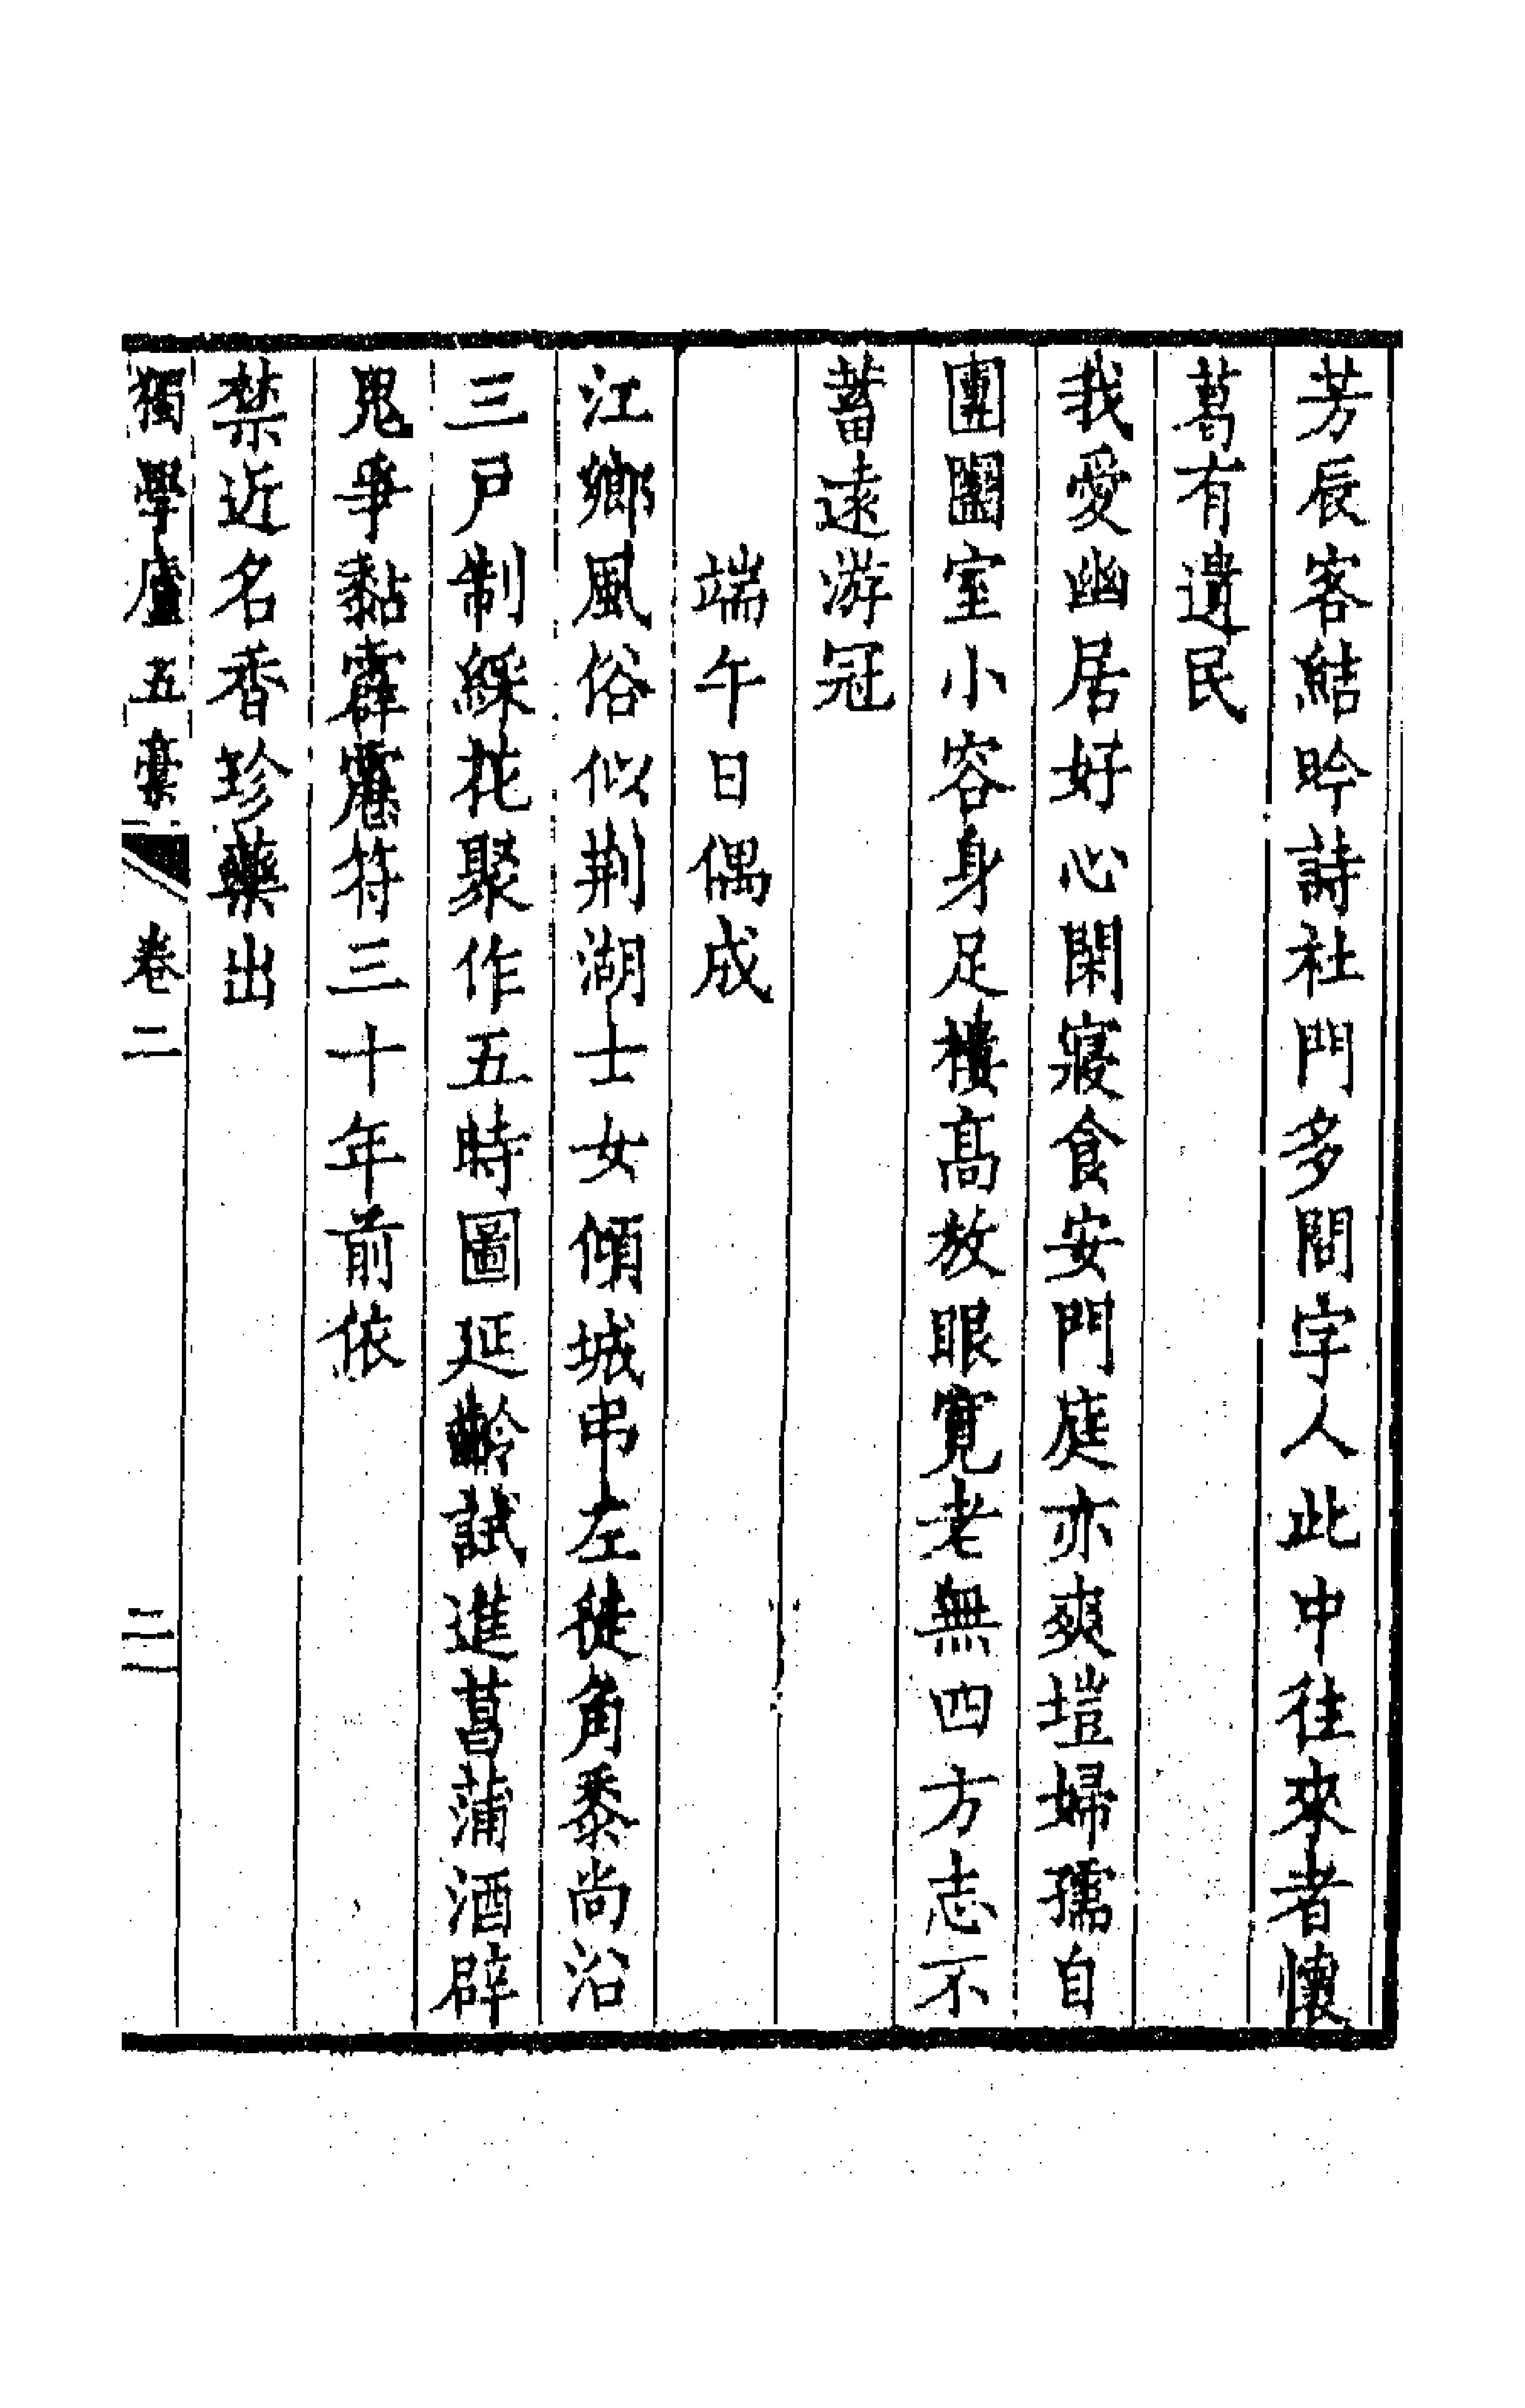 芳辰客結吟詩社門多問字人此中往來者懷
葛有遺民
我愛幽居好心閑寢食安門庭亦爽塏婦孺自
團圞室小容身足樓高放眼寬老無四方志不
蓄遠游冠
端午日偶成
江鄉風俗似荆湖士女傾城弔左徒角黍尚沿
三戸制綵花聚作五時圖延齡試進菖蒲酒辟
鬼爭黏霹靂符三十年前依
禁近名香珍藥出
獨學廬五稾 卷二 三